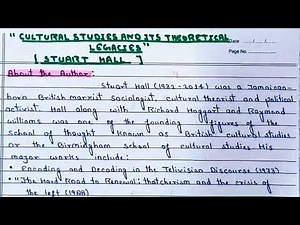 "CULTURAL STUDIES AND ITS THEORETICAL
LEGACIES"
[STUART HALL]
Date
Page No.
About the Author:
Stuart Hall (1932-2014) was a Jamaican-
born British marxist Sociologist, cultural theorist and political
activist. Hall along with Richard Hoggart and Raymond
williams was one of the founding figures of the
school of thought known as British cultural studies
or the Birmingham school of cultural studies His
major works include:
• Encoding and Decoding in the Television Discourse (1973)
• "The Hard Road to Renewal: thatcherism and the crisis of
the left (1988)